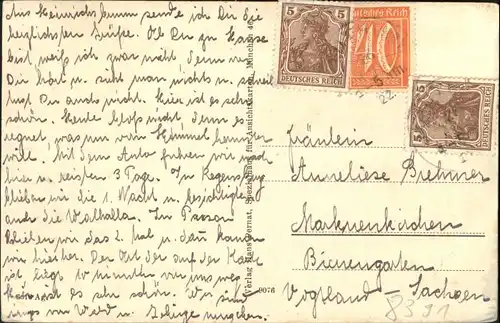 Aus Heinrichsbrunn sende ich Dir die
herzlichsten Grüße. Ob Du zu Hause
bist, weiß ich zwar nicht, denn von
Dir hört u. sieht man nichts u. schreiben
tust Du auch nicht. Hier ist es sehr
schön. Heute bloß nicht, denn es
regnet, was nur vom Himmel herunter
will. Mit dem Auto fuhren wir nach
hier u. reisten 3 Tage. In Regensburg
blieben wir die 1. Nacht u. besichtigten
auch die Walhalla. In Passau
blieben wir das 2. mal u. dann kamen
wir hierher. Der Ort der auf der Karte
ist liegt 10 Minuten von uns weg
es sehr schön. Wir sind
rings von Wald u. umgeben.
Verlag Hans Pernat, Spezialhaus für Ansichtskarten, München
9076
5
5
DEUTSCHES REICH
Deutsches Reich
40
5
5
DEUTSCHES REICH
22
Fräulein
Anneliese Brehmer
Markneukirchen
Bienengarten
Vogtland - Sachsen
8391